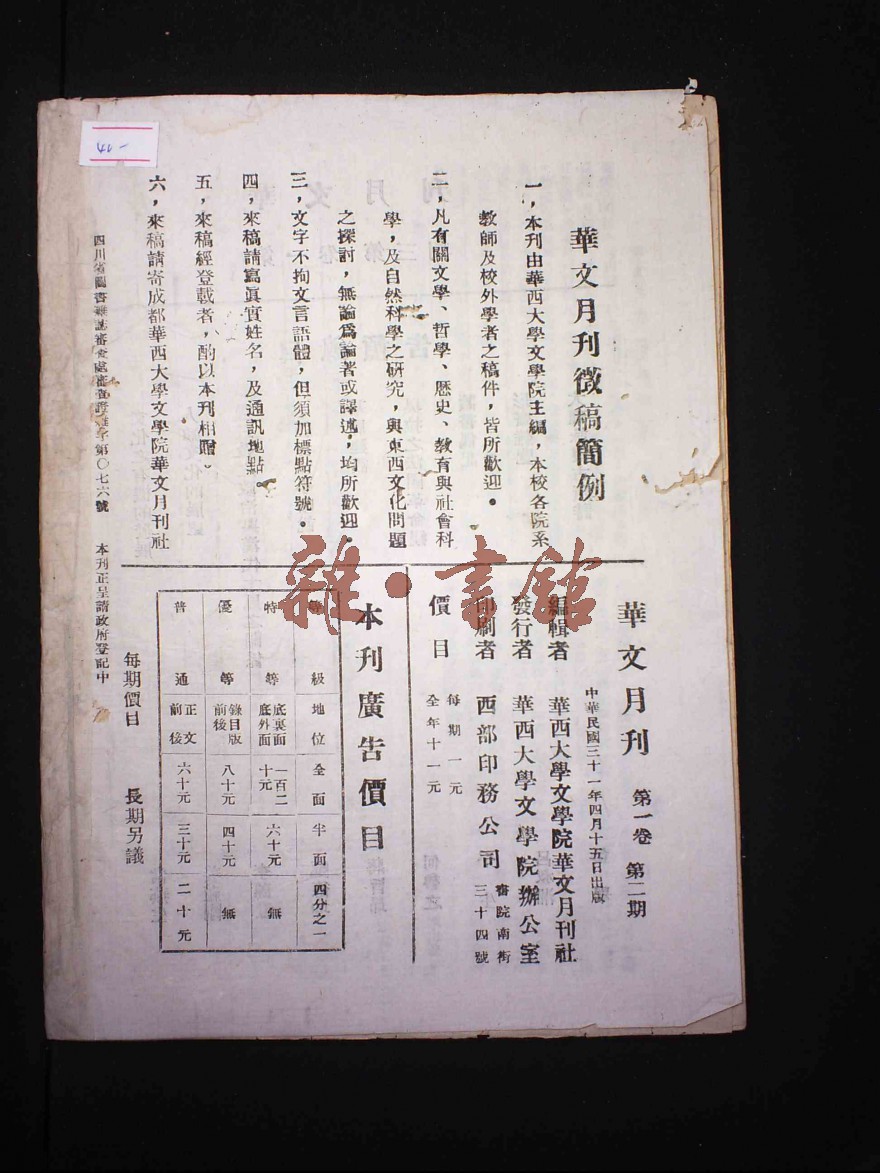 華文月刊徵稿簡例
一,本刊由華西大學文學院主編,本校各院系
教師及校外學者之稿件,皆所歡迎。
二,凡有關文學、哲學、歷史、教育與社會科
學,及自然科學之研究,與東西文化問題
之探討,無論為論著或譯述,均所歡迎。
三,文字不拘文言語體,但須加標點符號。
四,來稿請寫眞實姓名,及通訊地點。
五,來稿經登載者,酌以本刊相贈。
六,來稿請寄成都華西大學文學院華文月刊社
四川省圖書雜誌審查處審查證 字第〇七六號 本刊正呈請政府登記中
華文月刊 第一卷 第二期
中華民國三十一年四月十五日出版
編輯者 華西大學文學院華文月刊社
發行者 華西大學文學院辦公室
印刷者 西部印務公司 書院南街三十四號
價目 每期一元
全年十一元
本刊廣告價目
等級 地位 全面 半面 四分之一
特等 底裏面底外面 一百二十元 六十元 無
優等 錄目版前後 八十元 四十元 無
普通 正文前後 六十元 三十元 二十元
每期價目 長期另議
雜·書館